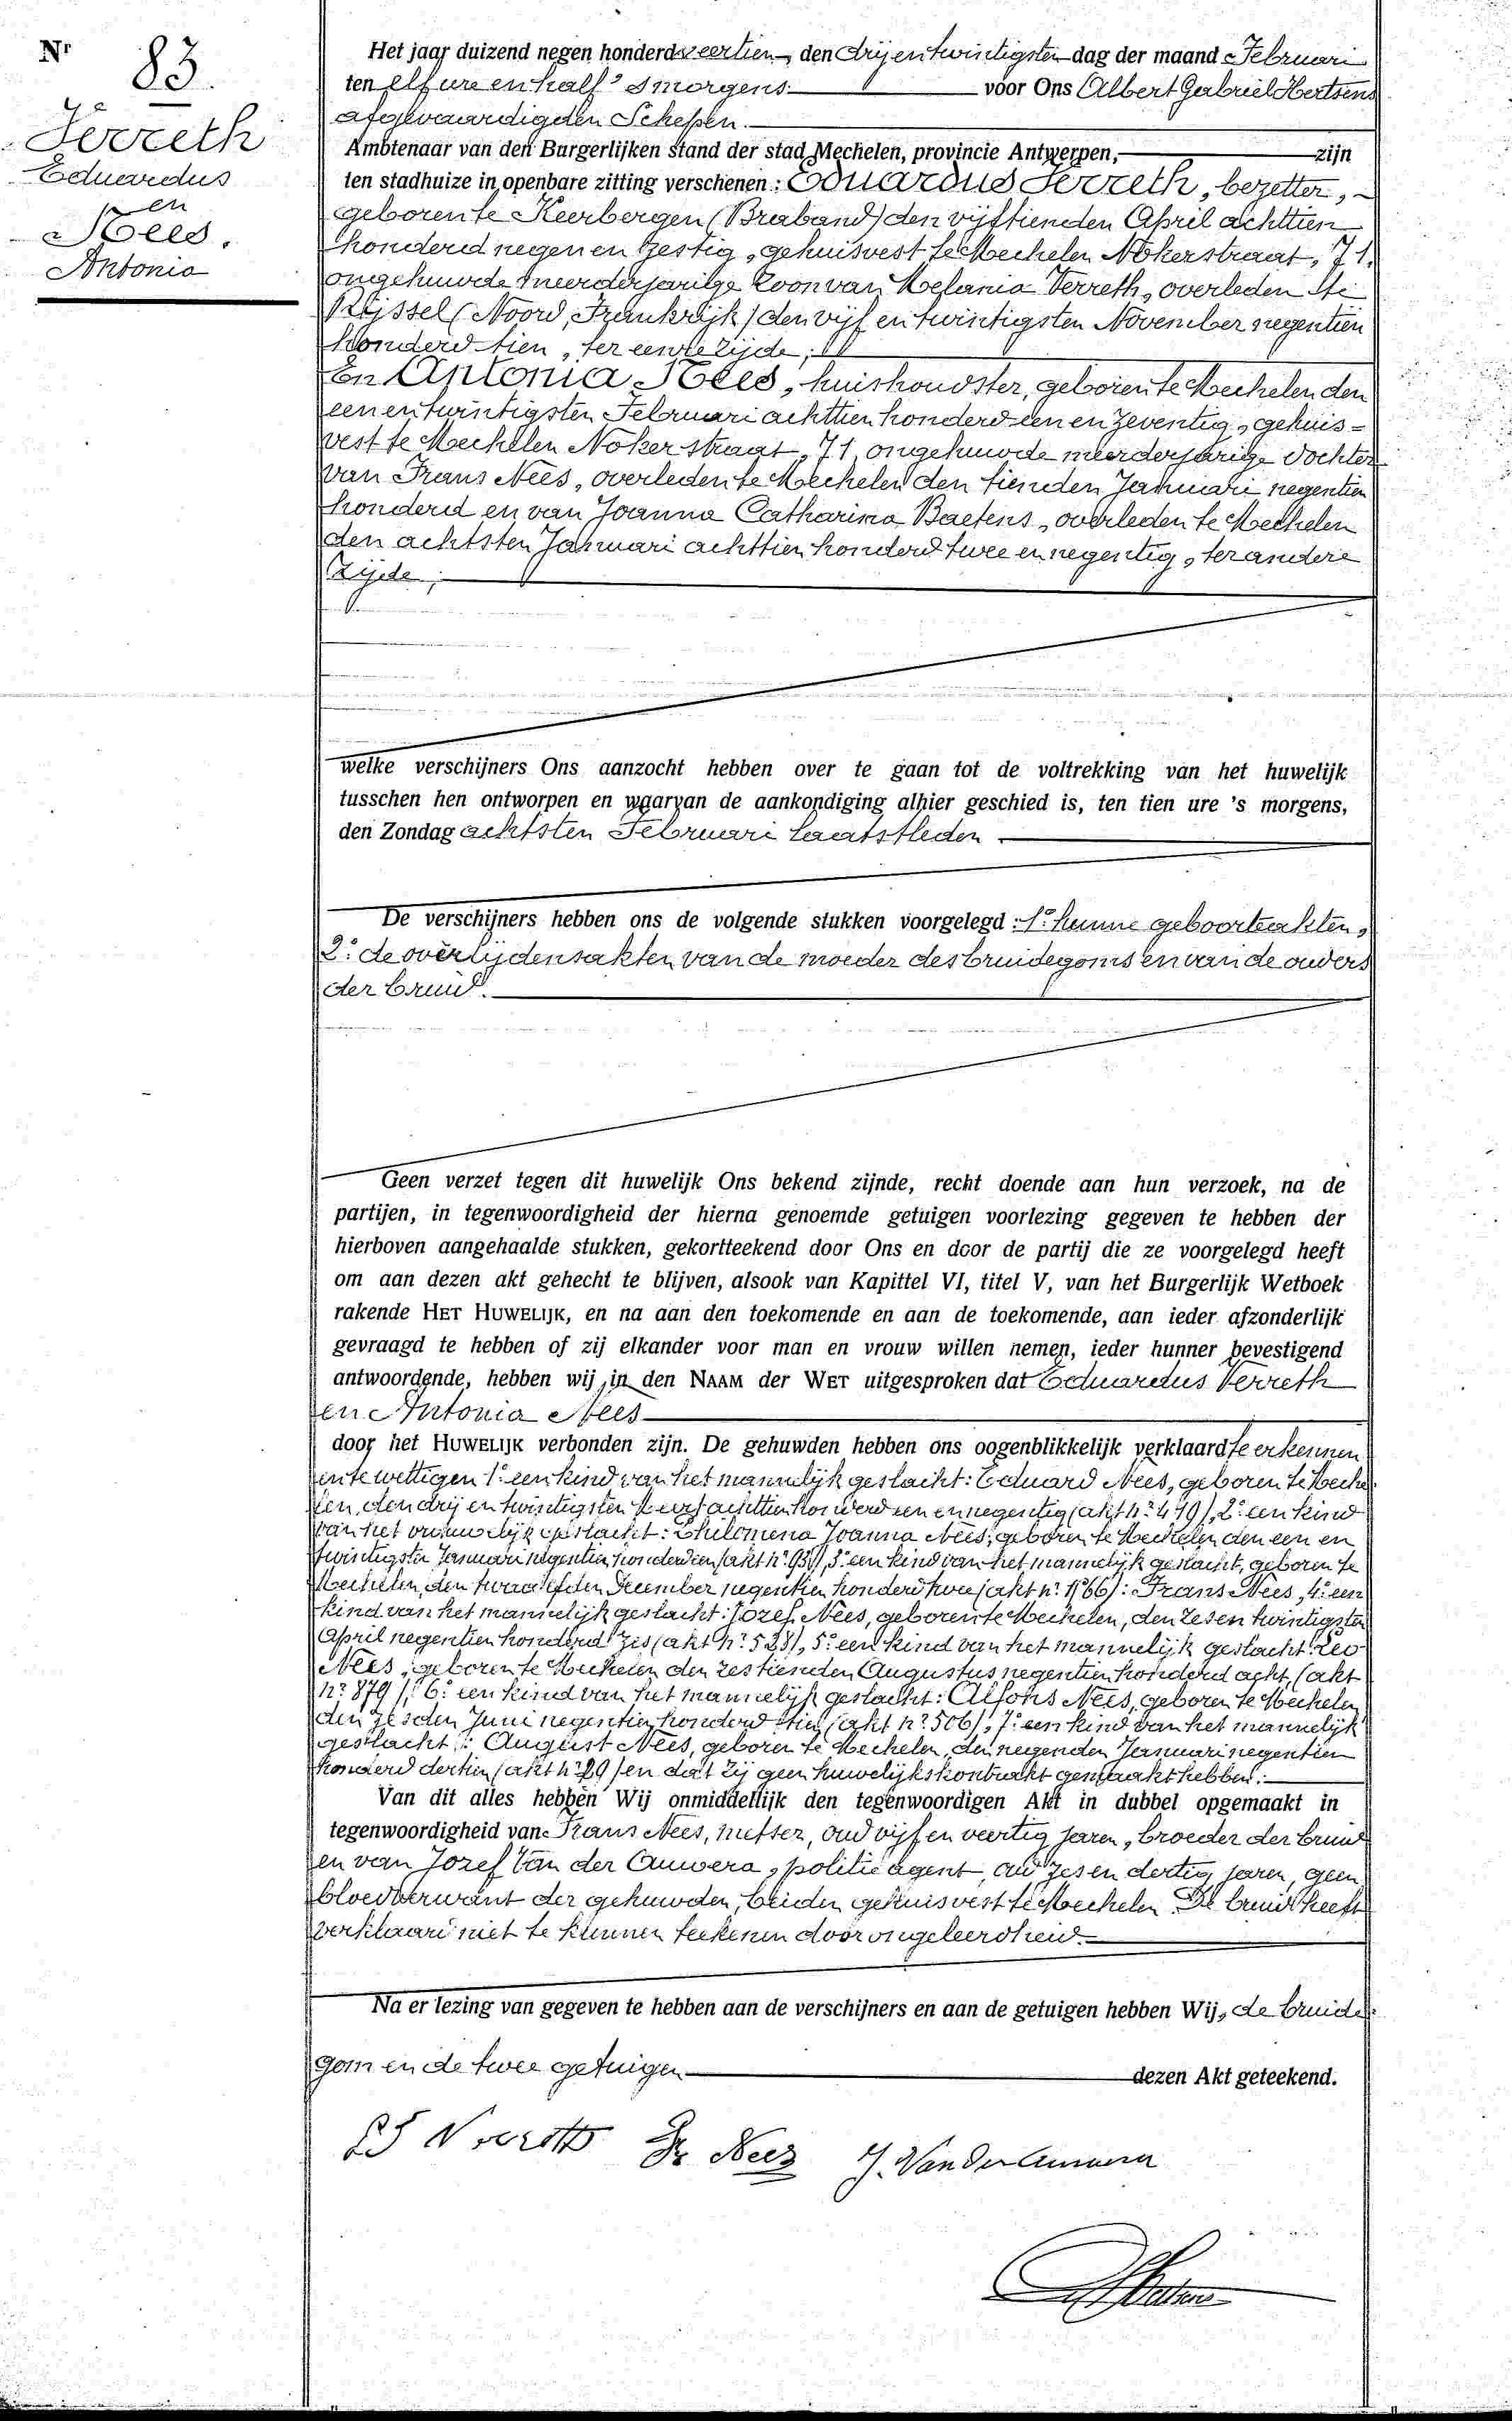 Nr 83.
Verreth
Eduardus
en
Nees.
Antonia
Het jaar duizend negen honderd veertien, den drij en twintigsten dag der maand Februari
ten elf ure en half 's morgens voor Ons Albert Gabriel Hertsens
afgevaardigden Schepen.
Ambtenaar van den Burgerlijken stand der stad Mechelen, provincie Antwerpen, zijn
ten stadhuize in openbare zitting verschenen : Eduardus Verreth, bezetter,
geboren te Keerbergen (Braband) den vijftienden April achttien
honderd negen en zestig, gehuisvest te Mechelen Nokerstraat, 71,
ongehuwde meerderjarige zoon van Melania Verreth, overleden te
Rijssel (Noord, Frankrijk) den vijf en twintigsten November negentien
honderd tien, ter eenre zijde;
En Antonia Nees, huishoudster, geboren te Mechelen den
een en twintigsten Februari achttien honderd een en zeventig, gehuis=
vest te Mechelen Nokerstraat, 71, ongehuwde meerderjarige dochter
van Frans Nees, overleden te Mechelen den tienden Januari negentien
honderd en van Joanna Catharina Baetens, overleden te Mechelen
den achtsten Januari achttien honderd twee en negentig, ter andere
zijde;
welke verschijners Ons aanzocht hebben over te gaan tot de voltrekking van het huwelijk
tusschen hen ontworpen en waarvan de aankondiging alhier geschied is, ten tien ure 's morgens,
den Zondag achtsten Februari laatstleden
De verschijners hebben ons de volgende stukken voorgelegd : 1° hunne geboorteakten,
2° de overlijdensakten van de moeder des bruidegoms en van de ouders
der bruid.
Geen verzet tegen dit huwelijk Ons bekend zijnde, recht doende aan hun verzoek, na de
partijen, in tegenwoordigheid der hierna genoemde getuigen voorlezing gegeven te hebben der
hierboven aangehaalde stukken, gekortteekend door Ons en door de partij die ze voorgelegd heeft
om aan dezen akt gehecht te blijven, alsook van Kapittel VI, titel V, van het Burgerlijk Wetboek
rakende HET HUWELIJK, en na aan den toekomende en aan de toekomende, aan ieder afzonderlijk
gevraagd te hebben of zij elkander voor man en vrouw willen nemen, ieder hunner bevestigend
antwoordende, hebben wij in den NAAM der WET uitgesproken dat Eduardus Verreth
en Antonia Nees
door het HUWELIJK verbonden zijn. De gehuwden hebben ons oogenblikkelijk verklaard te erkennen
en te wettigen 1° een kind van het mannelijk geslacht: Eduard Nees, geboren te Meche
len, den drij en twintigsten achttien honderd een en negentig (akt n° 419), 2° een kind
van het vrouwelijk geslacht: Philomena Joanna Nees, geboren te Mechelen den een en
twintigsten Januari negentien honderd een (akt n° 93), 3° een kind van het mannelijk geslacht, geboren te
Mechelen, den twaalfden December negentien honderd twee (akt n° 1166): Frans Nees, 4° een
kind van het mannelijk geslacht: Jozef Nees, geboren te Mechelen, den zes en twintigsten
April negentien honderd zes (akt n° 528), 5° een kind van het mannelijk geslacht: Leo
Nees, geboren te Mechelen den zestienden Augustus negentien honderd acht, (akt
n° 879), 6° een kind van het mannelijk geslacht: Alfons Nees, geboren te Mechelen
den zesden Juni negentien honderd tien (akt n° 506), 7° een kind van het mannelijk
geslacht: August Nees, geboren te Mechelen, den negenden Januari negentien
honderd dertien (akt n° 29) en dat zij geen huwelijkskontrakt gemaakt hebben:
Van dit alles hebben Wij onmiddellijk den tegenwoordigen Akt in dubbel opgemaakt in
tegenwoordigheid van Frans Nees, metser, oud vijf en veertig jaren, broeder der bruid
en van Jozef Van der Auwera, politieagent, oud zes en dertig jaren, geen
bloedverwant der gehuwden, beiden gehuisvest te Mechelen. De bruid heeft
verklaard niet te kunnen teekenen door ongeleerdheid.
Na er lezing van gegeven te hebben aan de verschijners en aan de getuigen hebben Wij, de bruide
gom en de twee getuigen dezen Akt geteekend.
Verreth Fr Nees J. Van der Auwera
Hertsens